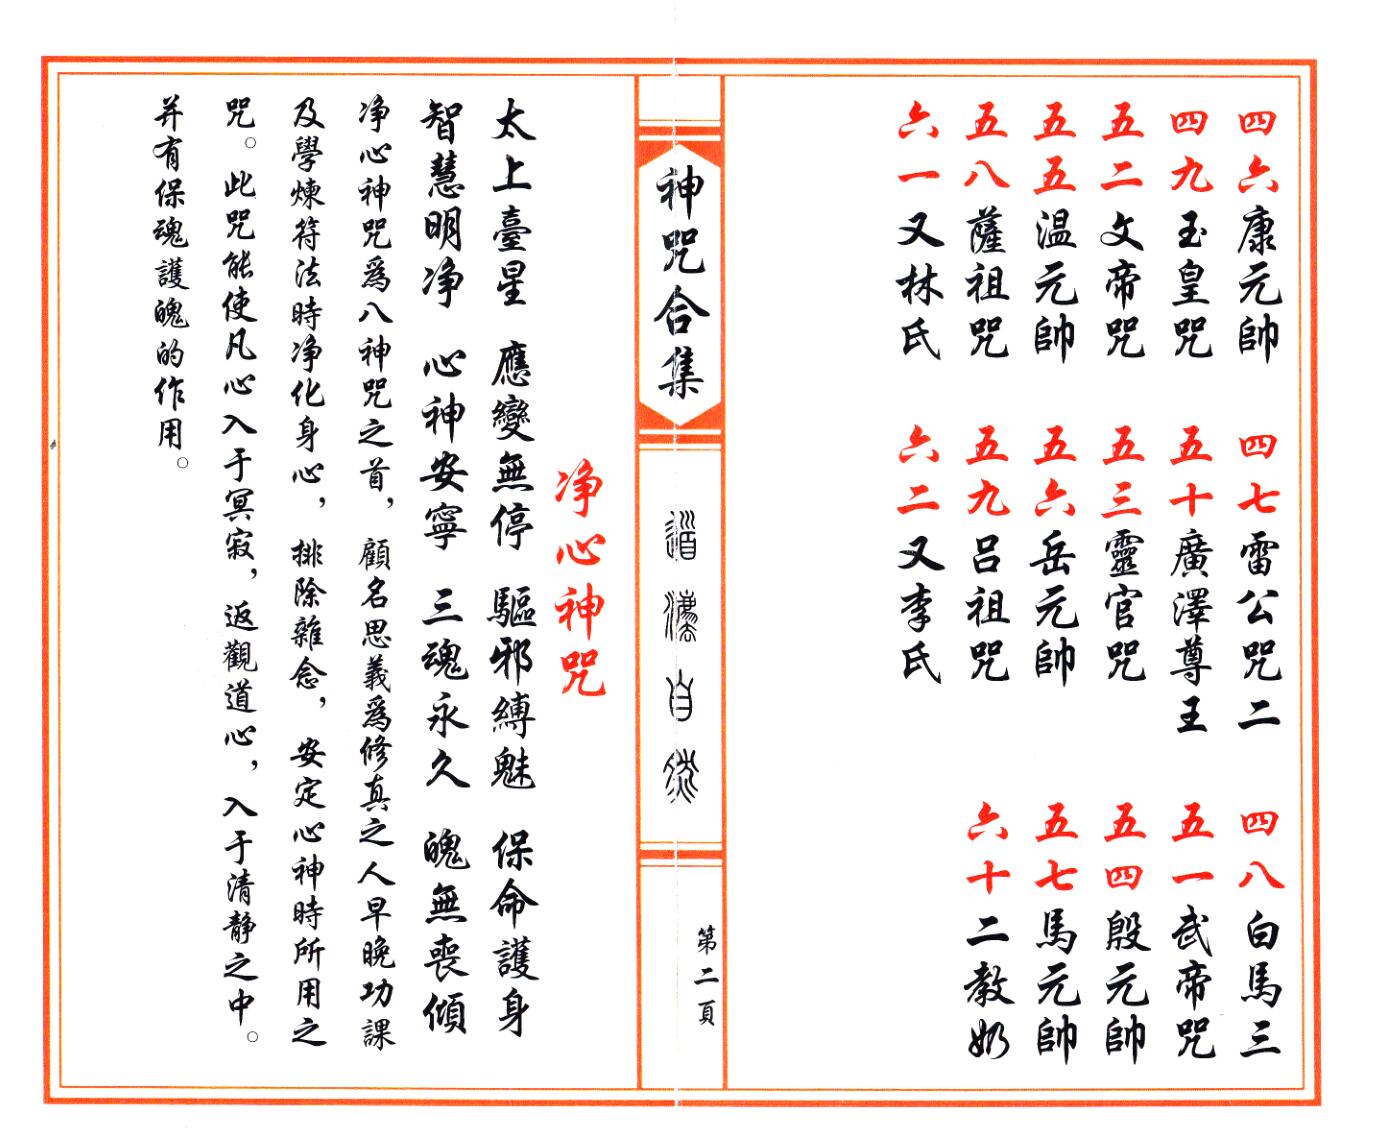 四六康元帥　四七雷公咒二　四八白馬三
四九玉皇咒　五十廣澤尊王　五一武帝咒
五二文帝咒　五三靈官咒　五四殷元帥
五五温元帥　五六岳元帥　五七馬元帥
五八薩祖咒　五九吕祖咒　六十二教奶
六一又林氏　六二又李氏
神咒合集
道法自然
第二頁
净心神咒
太上臺星　應變無停　驅邪縛魅　保命護身
智慧明净　心神安寧　三魂永久　魄無喪傾
净心神咒爲八神咒之首，顧名思義爲修真之人早晚功課
及學煉符法時净化身心，排除雜念，安定心神時所用之
咒。此咒能使凡心入于冥寂，返觀道心，入于清静之中。
并有保魂護魄的作用。